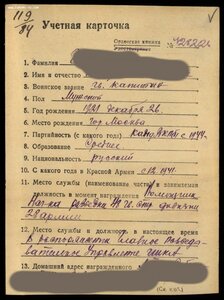 119
84
Учетная карточка
Орденская книжка
1. Фамилия
2. Имя и отчество
3. Воинское звание гв. капитан
4. Пол Мужской
5. Год рождения 1921 декабря 26.
6. Место рождения гор Москва
7. Партийность (с какого года) 1944.
8. Образование Среднее
9. Национальность русский
10. С какого года в Красной Армии с 12.1941.
11. Место службы (наименование части) и занимаемая
должность в момент награждения Помощник
Нач-ка разведки гв. стр. дивизии
28 армии
12. Место службы и должность в настоящее время
В распоряжении Главное Разведы-
вательное Управление
13. Домашний адрес награжденного